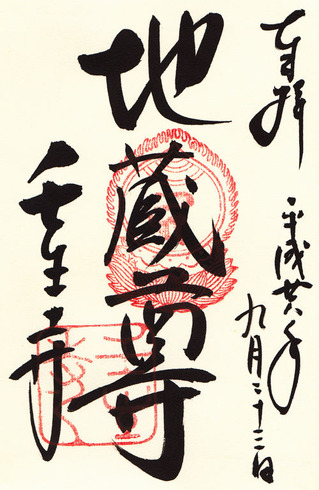 奉拝
平成廿八年
九月二十二日
地蔵尊
壬生寺